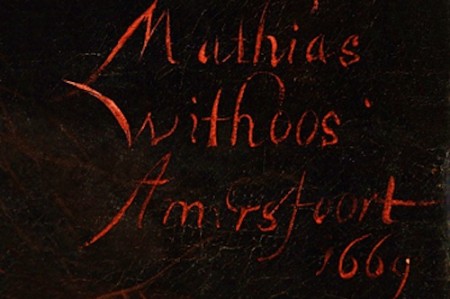 Mathias
Withoos
Amersfoort
1669